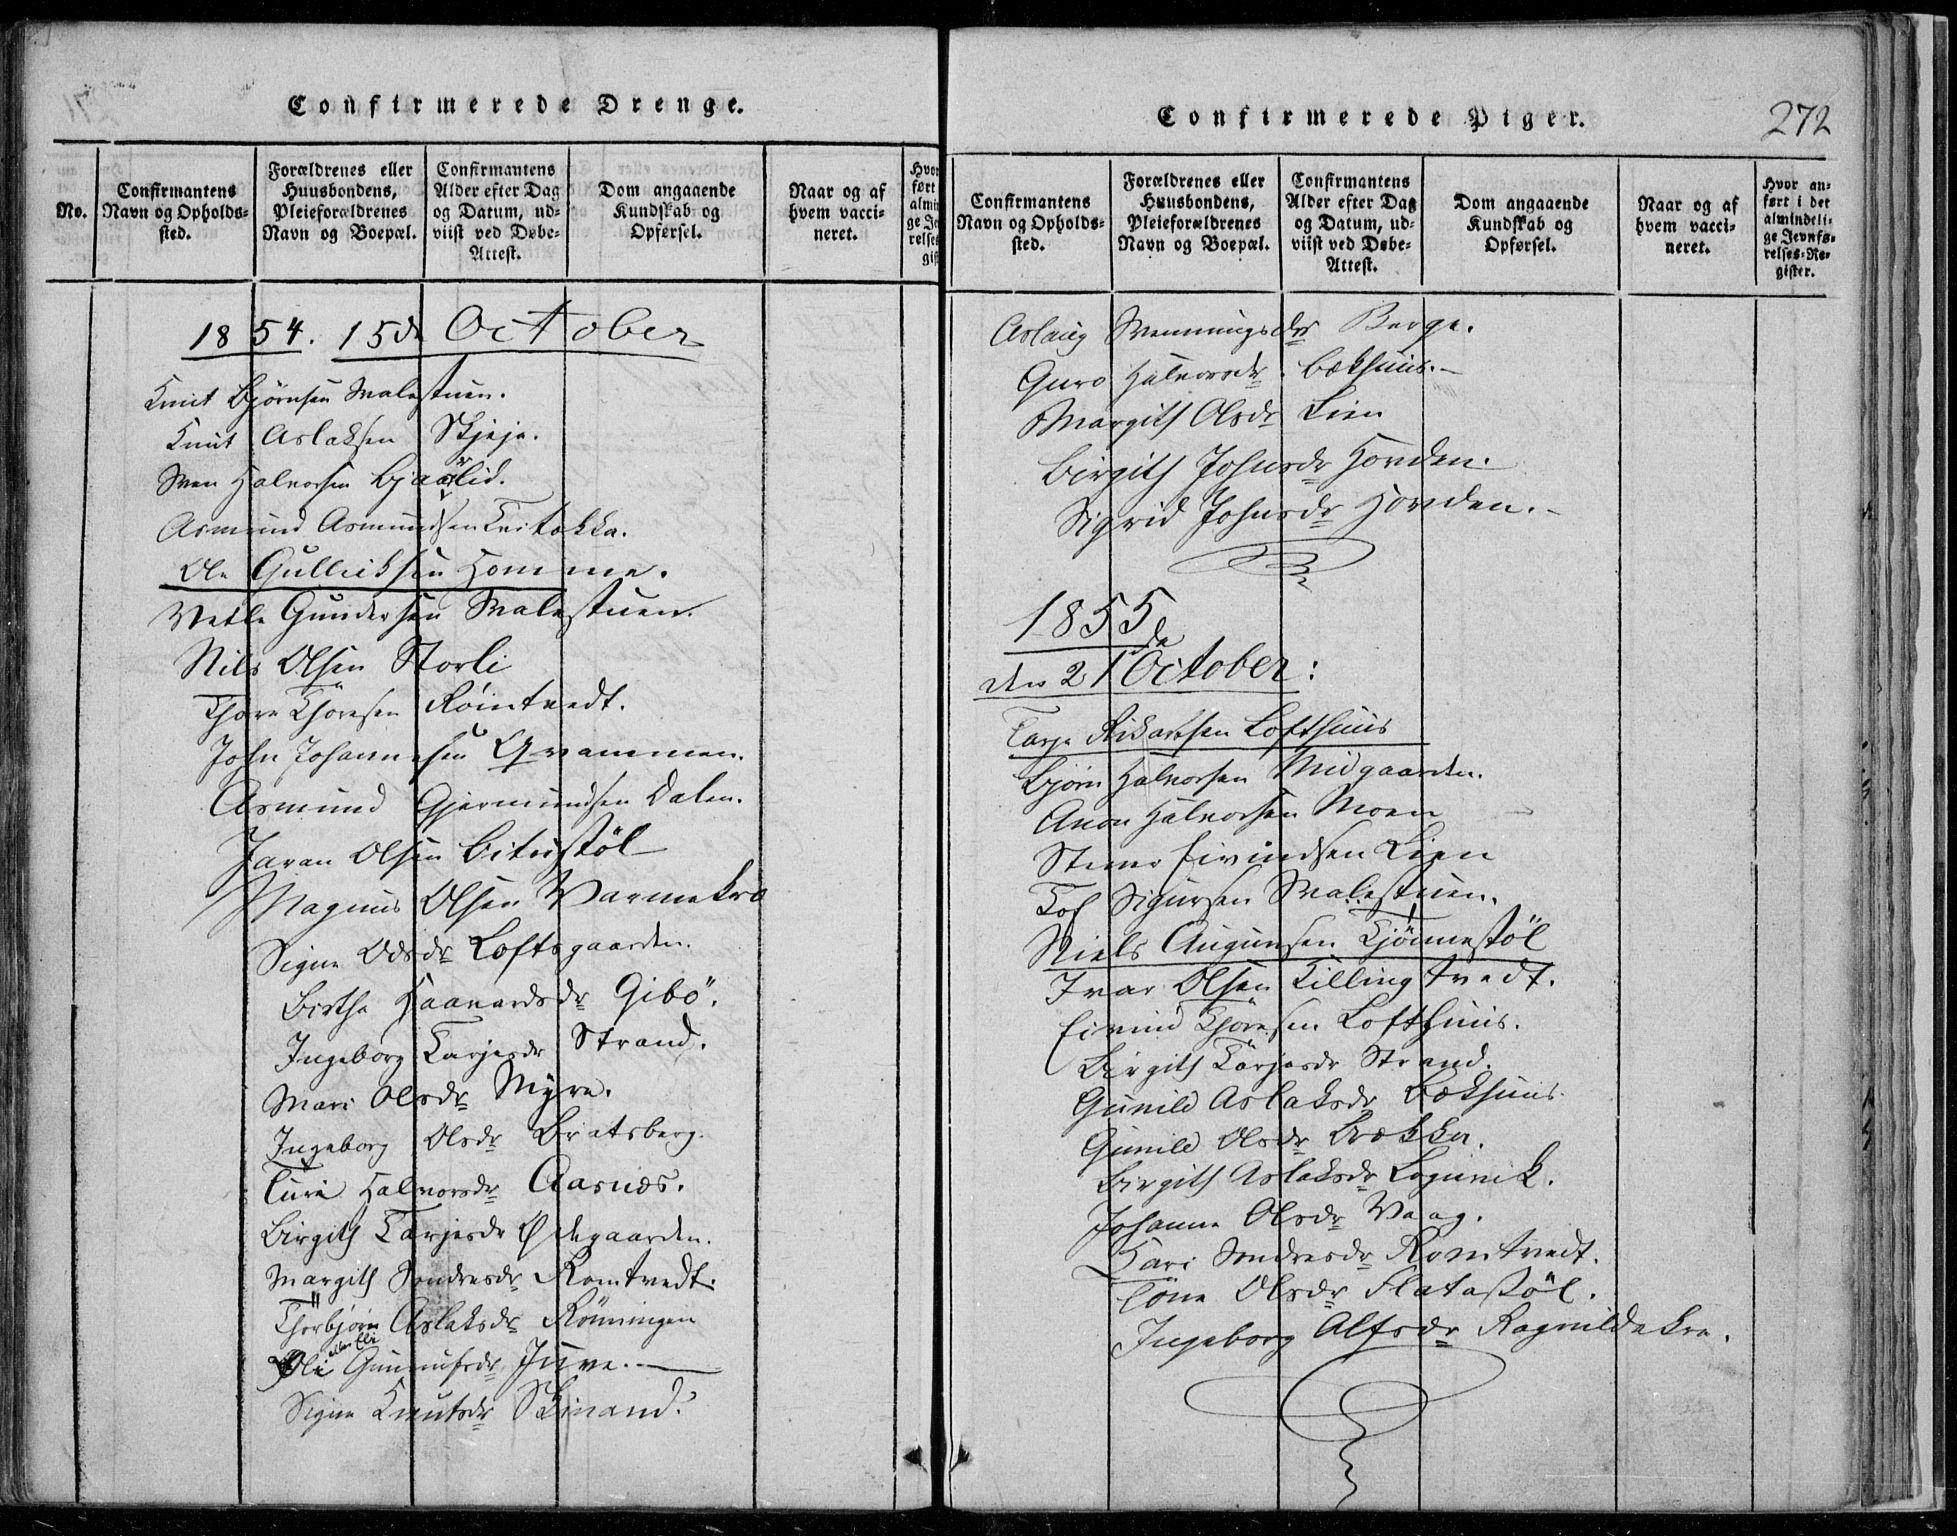 Confirmerede Drenge.
No.
Confirmantens Navn og Opholds=sted.
Forældrenes eller Huusbondens, Pleieforældrenes Navn og Boepæl.
Confirmantens Alder efter Dag og Datum, ud=viist ved Døbe=Attest.
Dom angaaende Kundskab og Opførsel.
Naar og af hvem vacci=neret.
1854. 15de October
Knut Bjørnsen Malestuen.
Knut Aslaksen Skjeje.
Sven Halvorsen Bjaalid.
Asmund Asmundsen Tritakka.
Ole Gulleiksen Homme.
Vetle Gundersen Malestuen.
Nils Olsen Storli
Thore Thoresen Rointvedt.
John Johannesen Qvammen.
Asmund Gjermundsen Dalen.
Javan Olsen Bitustöl
Magnus Olsen Varmekro
Signe Odsdr Loftsgaarden.
Birthe Haavardsdr Gibö.
Ingeborg Tarjesdr Strand.
Mari Olsdr Myra.
Ingeborg Olsdr Bratsberg.
Turi Halvorsdr Aasnæs.
Birgith Tarjesdr Ødegaarden.
Margith Sondresdr Romtvedt.
Thorbjörn Aslaksdr Rönningen
eller Eli
Oli Gunnufsdr Juve.
Signe Knutsdr Skinand.
Confirmerede Piger.
272
Confirmantens Navn og Opholds=sted.
Forældrenes eller Huusbondens, Pleieforældrenes Navn og Boepæl.
Confirmantens Alder efter Dag og Datum, ud=viist ved Døbe=Attest.
Dom angaaende Kundskab og Opførsel.
Naar og af hvem vacci=neret.
Hvor an=ført i det almindeli=ge Jevnfø=relses=Re=gister.
Aslaug Svenningsdr Berge.
Guro Halvorsdr Bækhuus.
Margith Olsdr Lien
Birgith Johnsdr Hovden.
Sigrid Johnsdr Hovden.
1855
den 21de October:
Tarje Rikardsen Lofthuus
Bjørn Halvorsen Midgaarden.
Aron Halvorsen Moen
Steinar Eivindsen Lien
Tof Sigursen Malestuen.
Niels Augunsen Kjönnestöl
Ivar Olsen Killingtvedt.
Eivind Thoresen Lofthuus.
Birgith Tarjesdr Strand.
Gunild Aslaksdr Bækhuus.
Gunild Olsdr Brækka.
Birgith Aslaksdr Lognvik.
Johanne Olsdr Vaag.
Kari Sondresdr Romtvedt.
Töne Olsdr Flatastöl.
Ingeborg Alfsdr Ragnildekro.